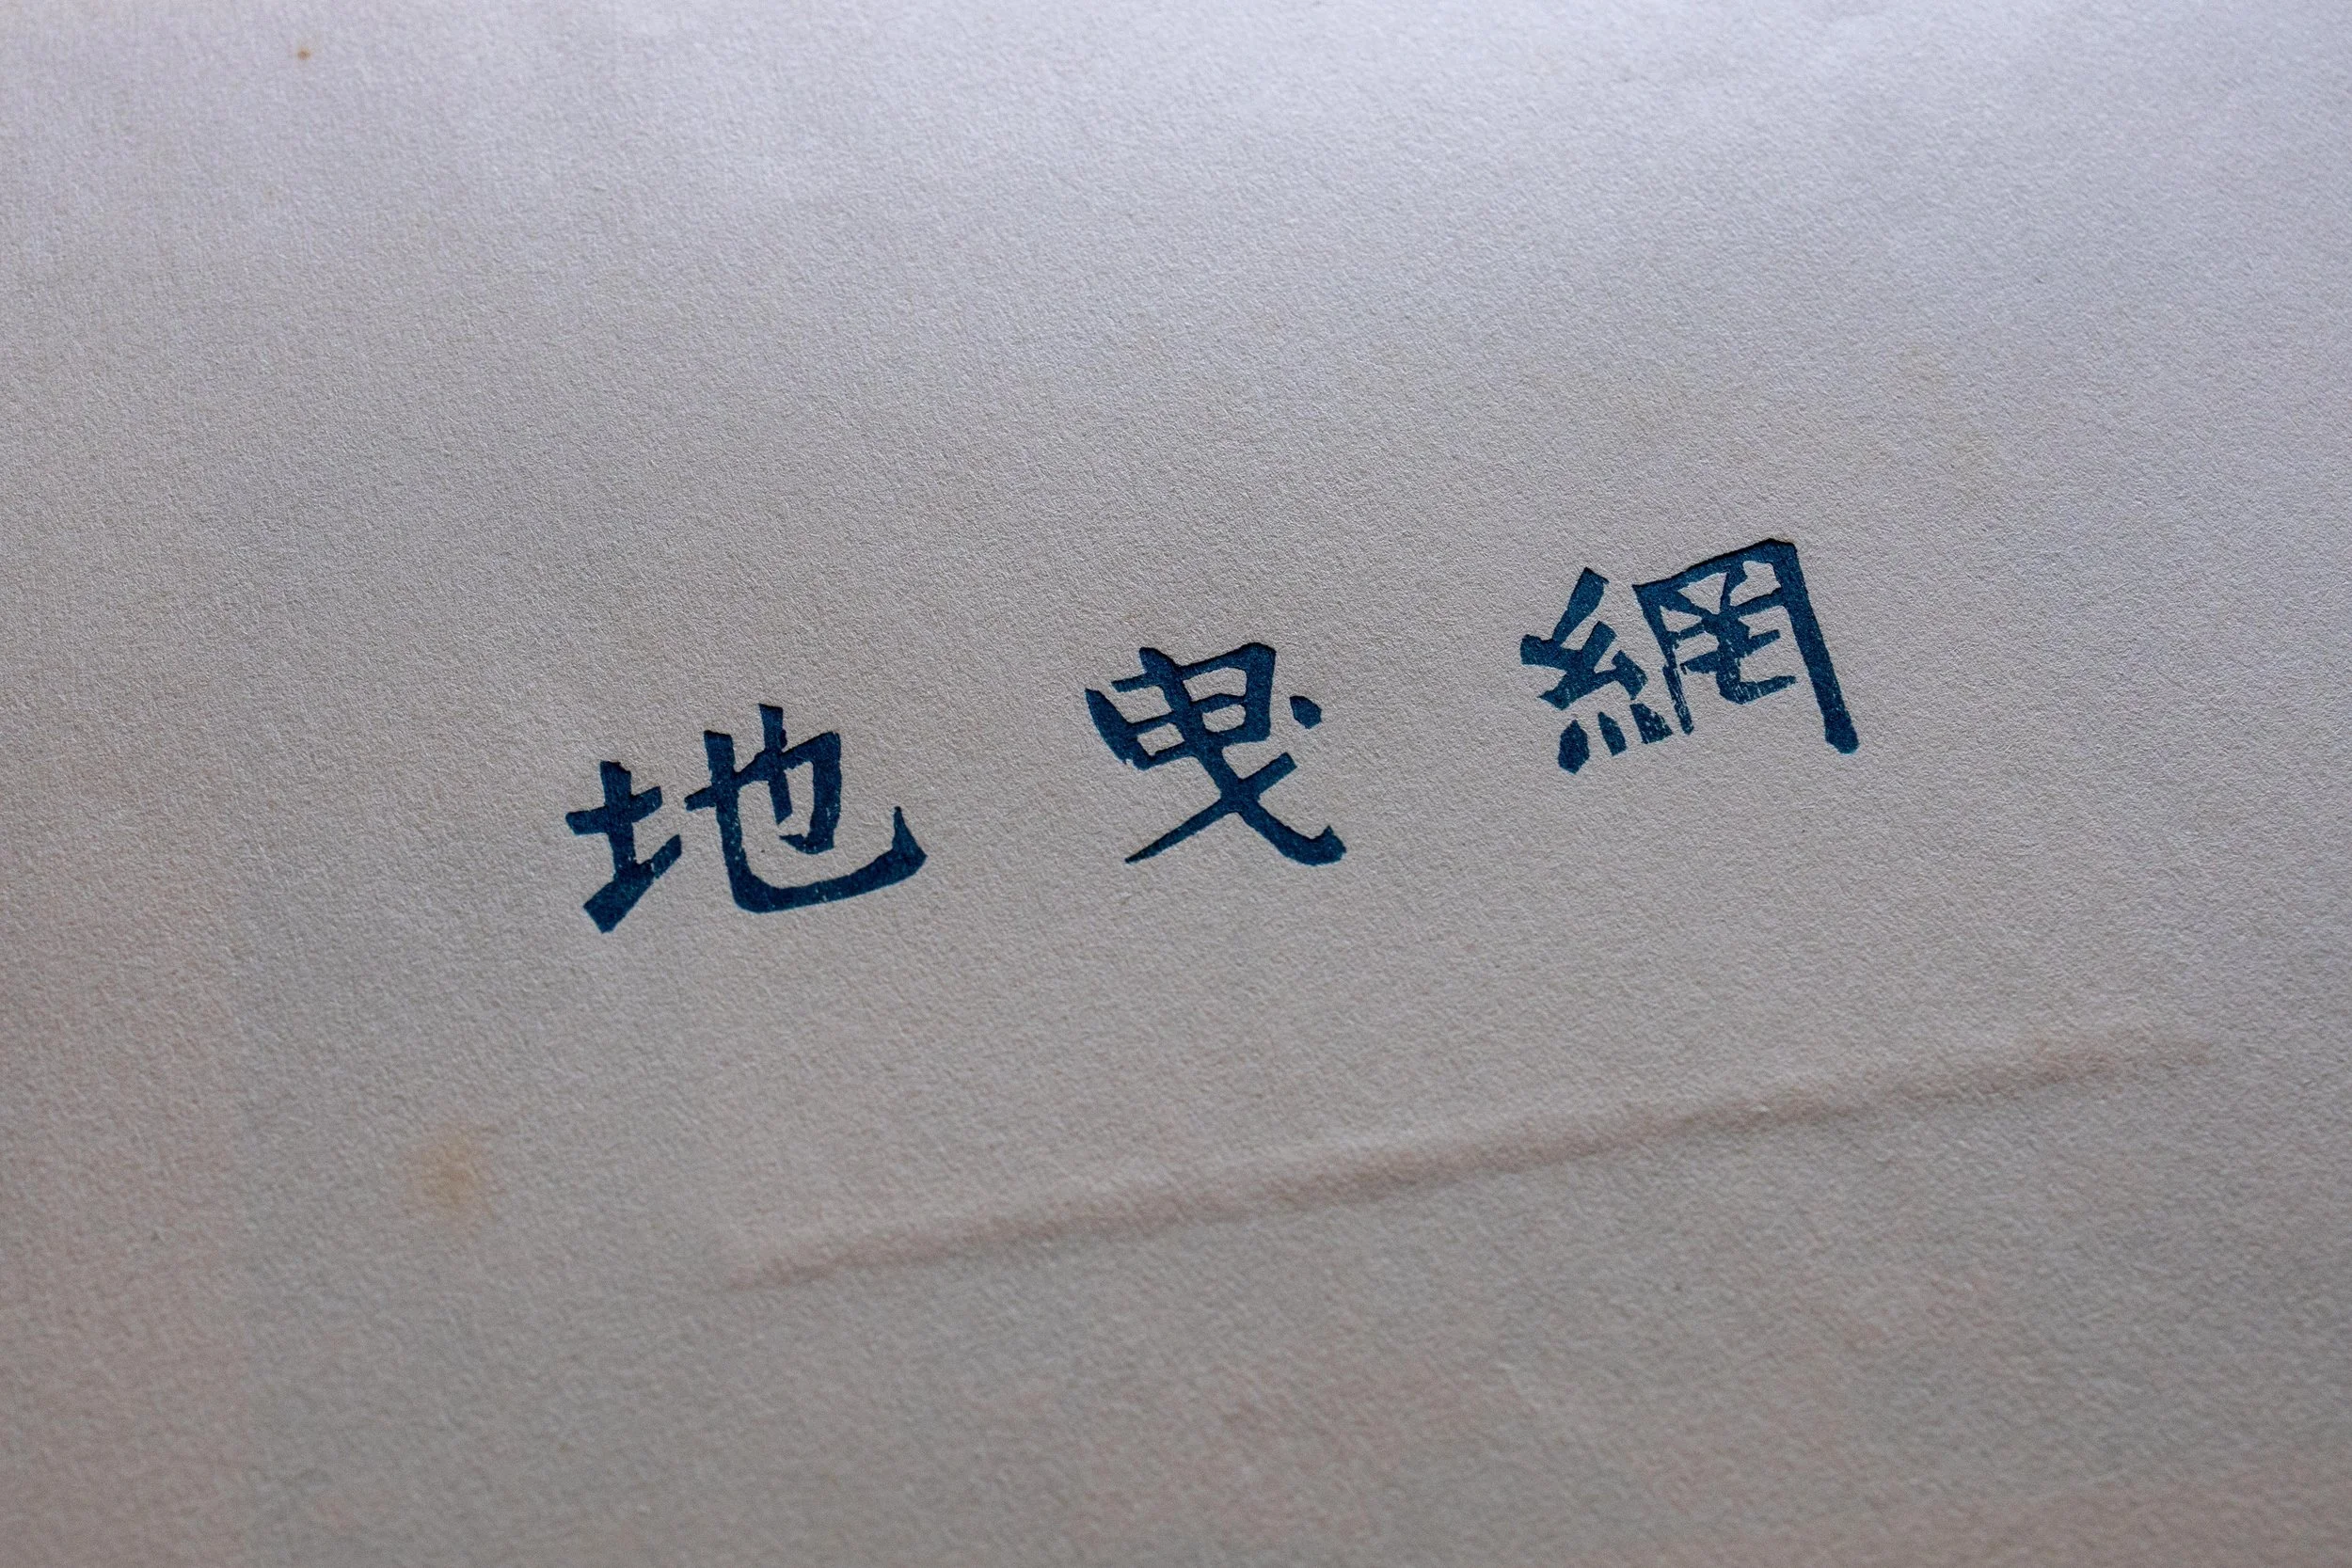 地曳網